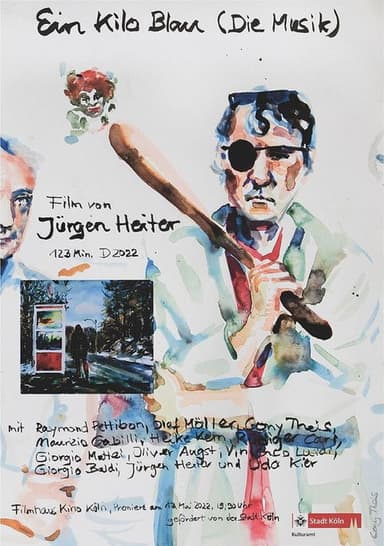 Ein Kilo Blau (Die Musik)
Film von
Jürgen Heiter
123 Min. D 2022
mit Raymond Pettibon, Olaf Möller, Gony Theis,
Maurizio Gabilli, Heike Kern, Rüdiger Carl,
Giorgio Mattei, Oliver Augst, Vincenzo Luidi,
Giorgio Baldi, Jürgen Heiter und Udo Kier
Filmhaus Kino Köln, Premiere am 2022, 19,30 Uhr
gefördert von der Stadt Köln
Stadt Köln
Kulturamt
Gony Theis